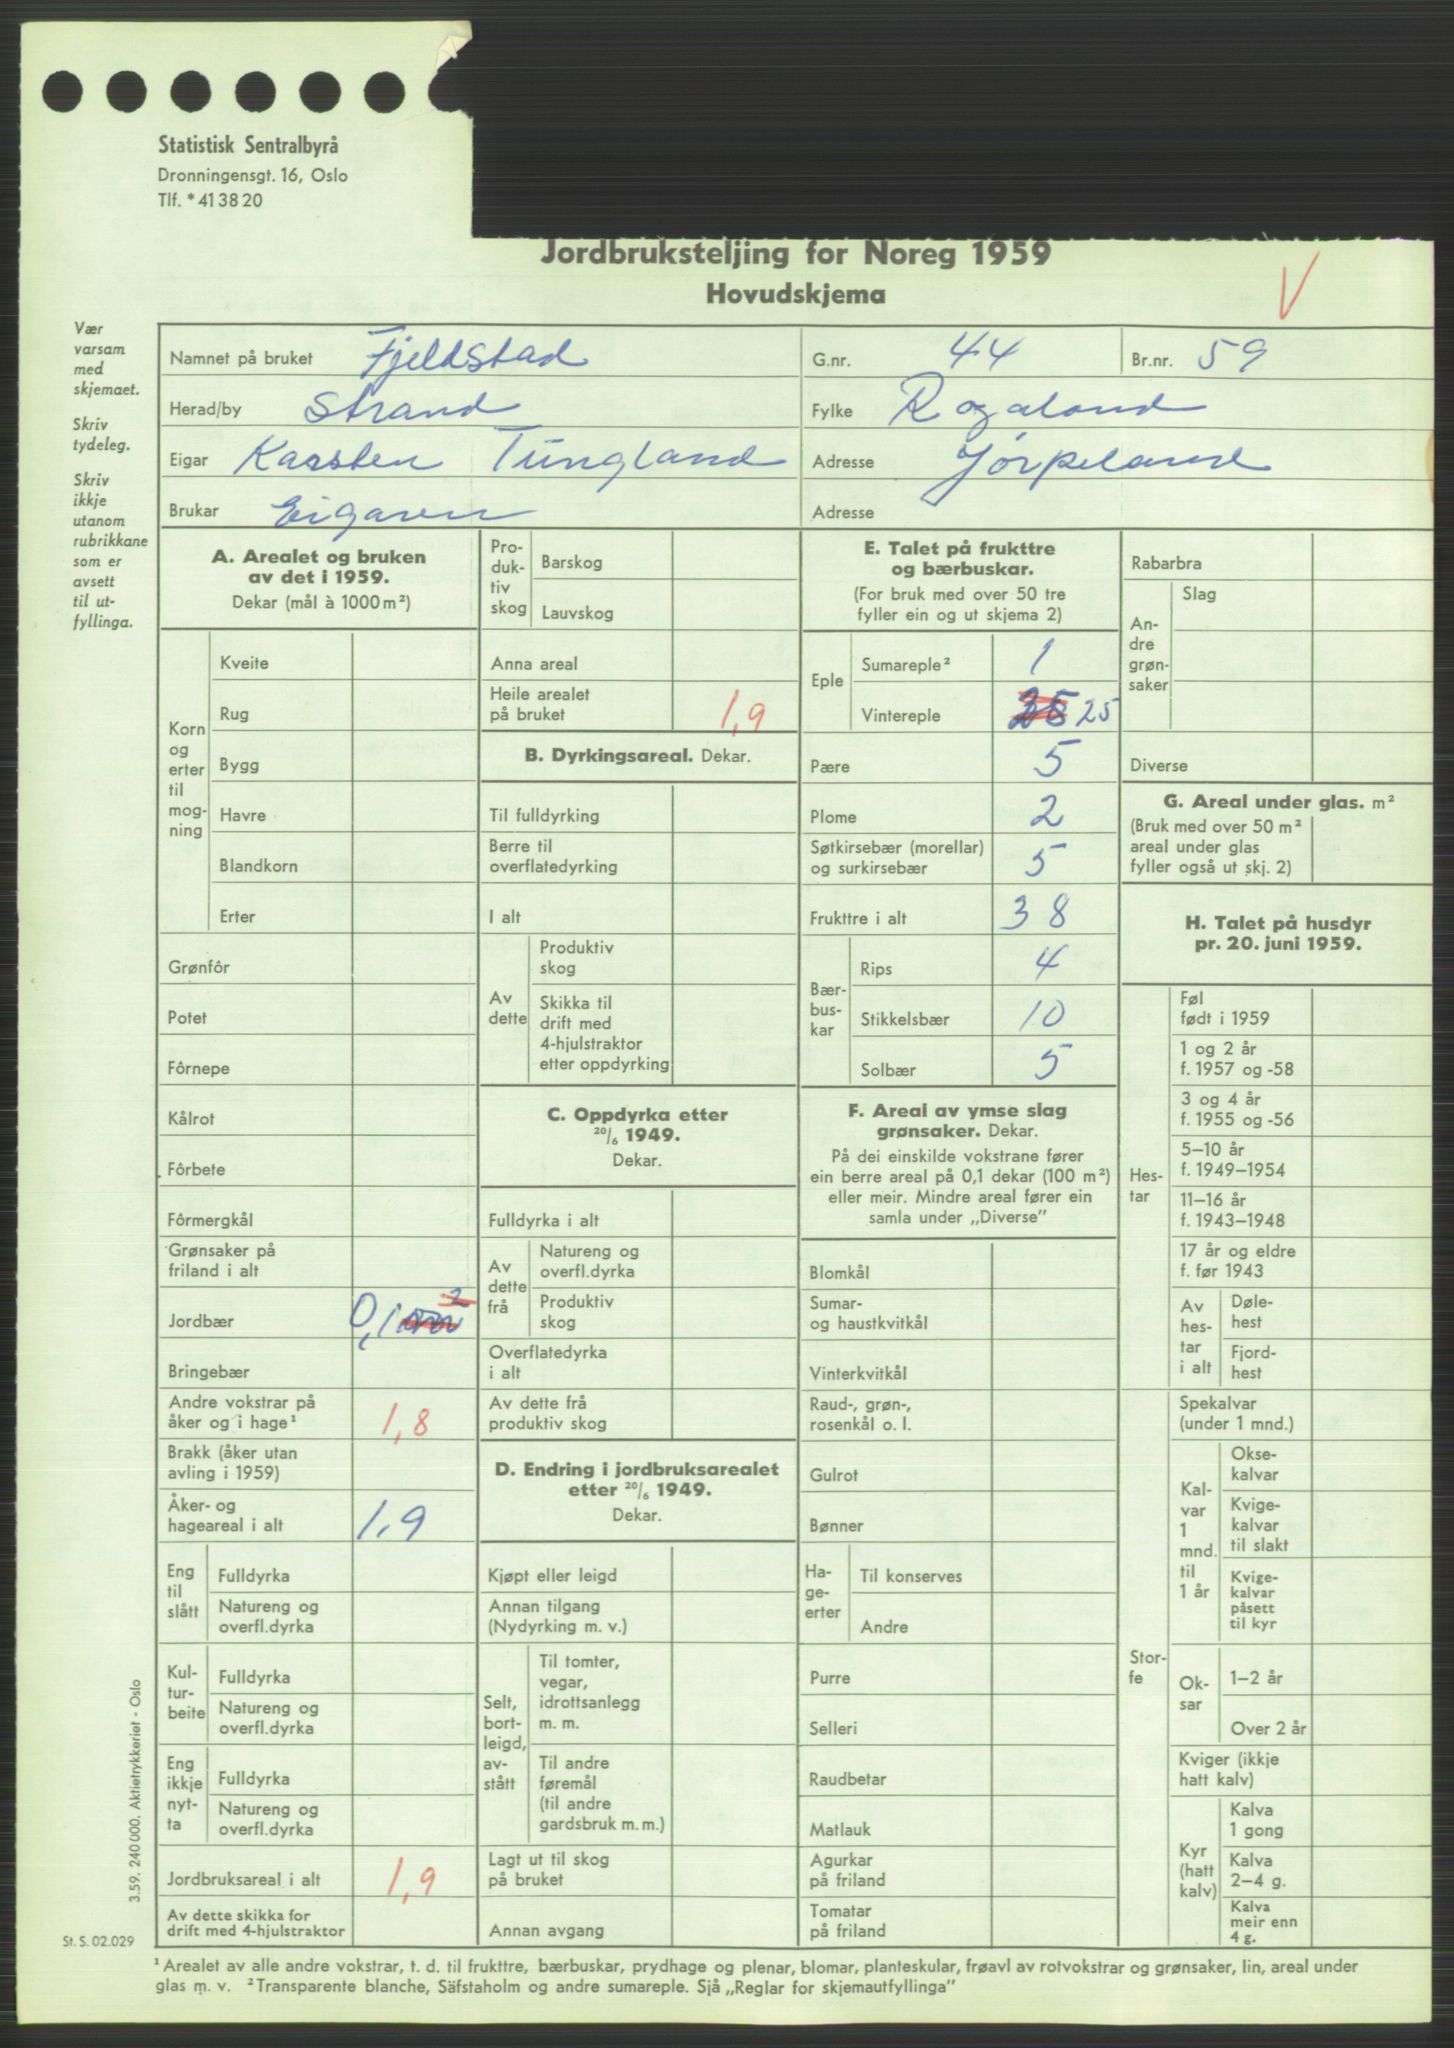 Statistisk Sentralbyrå
Dronningensgt. 16, Oslo
Tlf. *41 38 20
Jordbruksteljing for Noreg 1959
Hovudskjema
V
Vær
varsam
med
skjemaet.
Skriv
tydeleg.
Skriv
ikkje
utanom
rubrikkane
som er
avsett
til ut-
fyllinga.
Namnet på bruket Fjeldstad G.nr. 44 Br.nr. 59
Herad/by Strand Fylke Rogaland
Eigar Karsten Tungland Adresse Jørpeland
Brukar Eigaren Adresse
A. Arealet og bruken
av det i 1959.
Dekar (mål à 1000 m²)
Korn
og
erter
til
mog-
ning
Kveite
Rug
Bygg
Havre
Blandkorn
Erter
Grønfôr
Potet
Fôrnepe
Kålrot
Fôrbete
Fôrmergkål
Grønsaker på
friland i alt
Jordbær 0,1
Bringebær
Andre vokstrar på
åker og i hage¹ 1,8
Brakk (åker utan
avling i 1959)
Åker- og
hageareal i alt 1,9
Eng
til
slått
Fulldyrka
Natureng og
overfl.dyrka
Kul-
tur-
beite
Fulldyrka
Natureng og
overfl.dyrka
Eng
ikkje
nyt-
ta
Fulldyrka
Natureng og
overfl.dyrka
Jordbruksareal i alt 1,9
Av dette skikka for
drift med 4-hjulstraktor
Pro-
duk-
tiv
skog
Barskog
Lauvskog
Anna areal
Heile arealet
på bruket 1,9
B. Dyrkingsareal. Dekar.
Til fulldyrking
Berre til
overflatedyrking
I alt
Av
dette
Produktiv
skog
Skikka til
drift med
4-hjulstraktor
etter oppdyrking
C. Oppdyrka etter
20/6 1949.
Dekar.
Fulldyrka i alt
Av
dette
frå
Natureng og
overfl.dyrka
Produktiv
skog
Overflatedyrka
i alt
Av dette frå
produktiv skog
D. Endring i jordbruksarealet
etter 20/6 1949.
Dekar.
Kjøpt eller leigd
Annan tilgang
(Nydyrking m. v.)
Selt,
bort-
leigd,
av-
stått
Til tomter,
vegar,
idrottsanlegg
m. m.
Til andre
føremål
(til andre
gardsbruk m. m.)
Lagt ut til skog
på bruket
Annan avgang
E. Talet på frukttre
og bærbuskar.
(For bruk med over 50 tre
fyller ein og ut skjema 2)
Eple
Sumareple² 1
Vintereple 25
Pære 5
Plome 2
Søtkirsebær (morellar)
og surkirsebær 5
Frukttre i alt 38
Bær-
bus-
kar
Rips 4
Stikkelsbær 10
Solbær 5
F. Areal av ymse slag
grønsaker. Dekar.
På dei einskilde vokstrane fører
ein berre areal på 0,1 dekar (100 m²)
eller meir. Mindre areal fører ein
samla under „Diverse”
Blomkål
Sumar-
og haustkvitkål
Vinterkvitkål
Raud-, grøn-,
rosenkål o. l.
Gulrot
Bønner
Ha-
ge-
erter
Til konserves
Andre
Purre
Selleri
Raudbetar
Matlauk
Agurkar
på friland
Tomatar
på friland
Rabarbra
An-
dre
grøn-
saker
Slag
Diverse
G. Areal under glas. m²
(Bruk med over 50 m²
areal under glas
fyller også ut skj. 2)
H. Talet på husdyr
pr. 20. juni 1959.
Hes-
tar
Føl
født i 1959
1 og 2 år
f. 1957 og -58
3 og 4 år
f. 1955 og -56
5–10 år
f. 1949–1954
11–16 år
f. 1943–1948
17 år og eldre
f. før 1943
Av
hes-
tar
i alt
Døle-
hest
Fjord-
hest
Stor-
fe
Spekalvar
(under 1 mnd.)
Kal-
var
1
mnd.
til
1 år
Okse-
kalvar
Kvige-
kalvar
til slakt
Kvige-
kalvar
påsett
til kyr
Ok-
sar
1–2 år
Over 2 år
Kviger (ikkje
hatt kalv)
Kyr
(hatt
kalv)
Kalva
1 gong
Kalva
2–4 g.
Kalva
meir enn
4 g.
3.59. 240 000. Aktietrykkeriet - Oslo
St. S. 02.029
¹ Arealet av alle andre vokstrar, t. d. til frukttre, bærbuskar, prydhage og plenar, blomar, planteskular, frøavl av rotvokstrar og grønsaker, lin, areal under
glas m. v. ² Transparente blanche, Säfstaholm og andre sumareple. Sjå „Reglar for skjemautfyllinga”